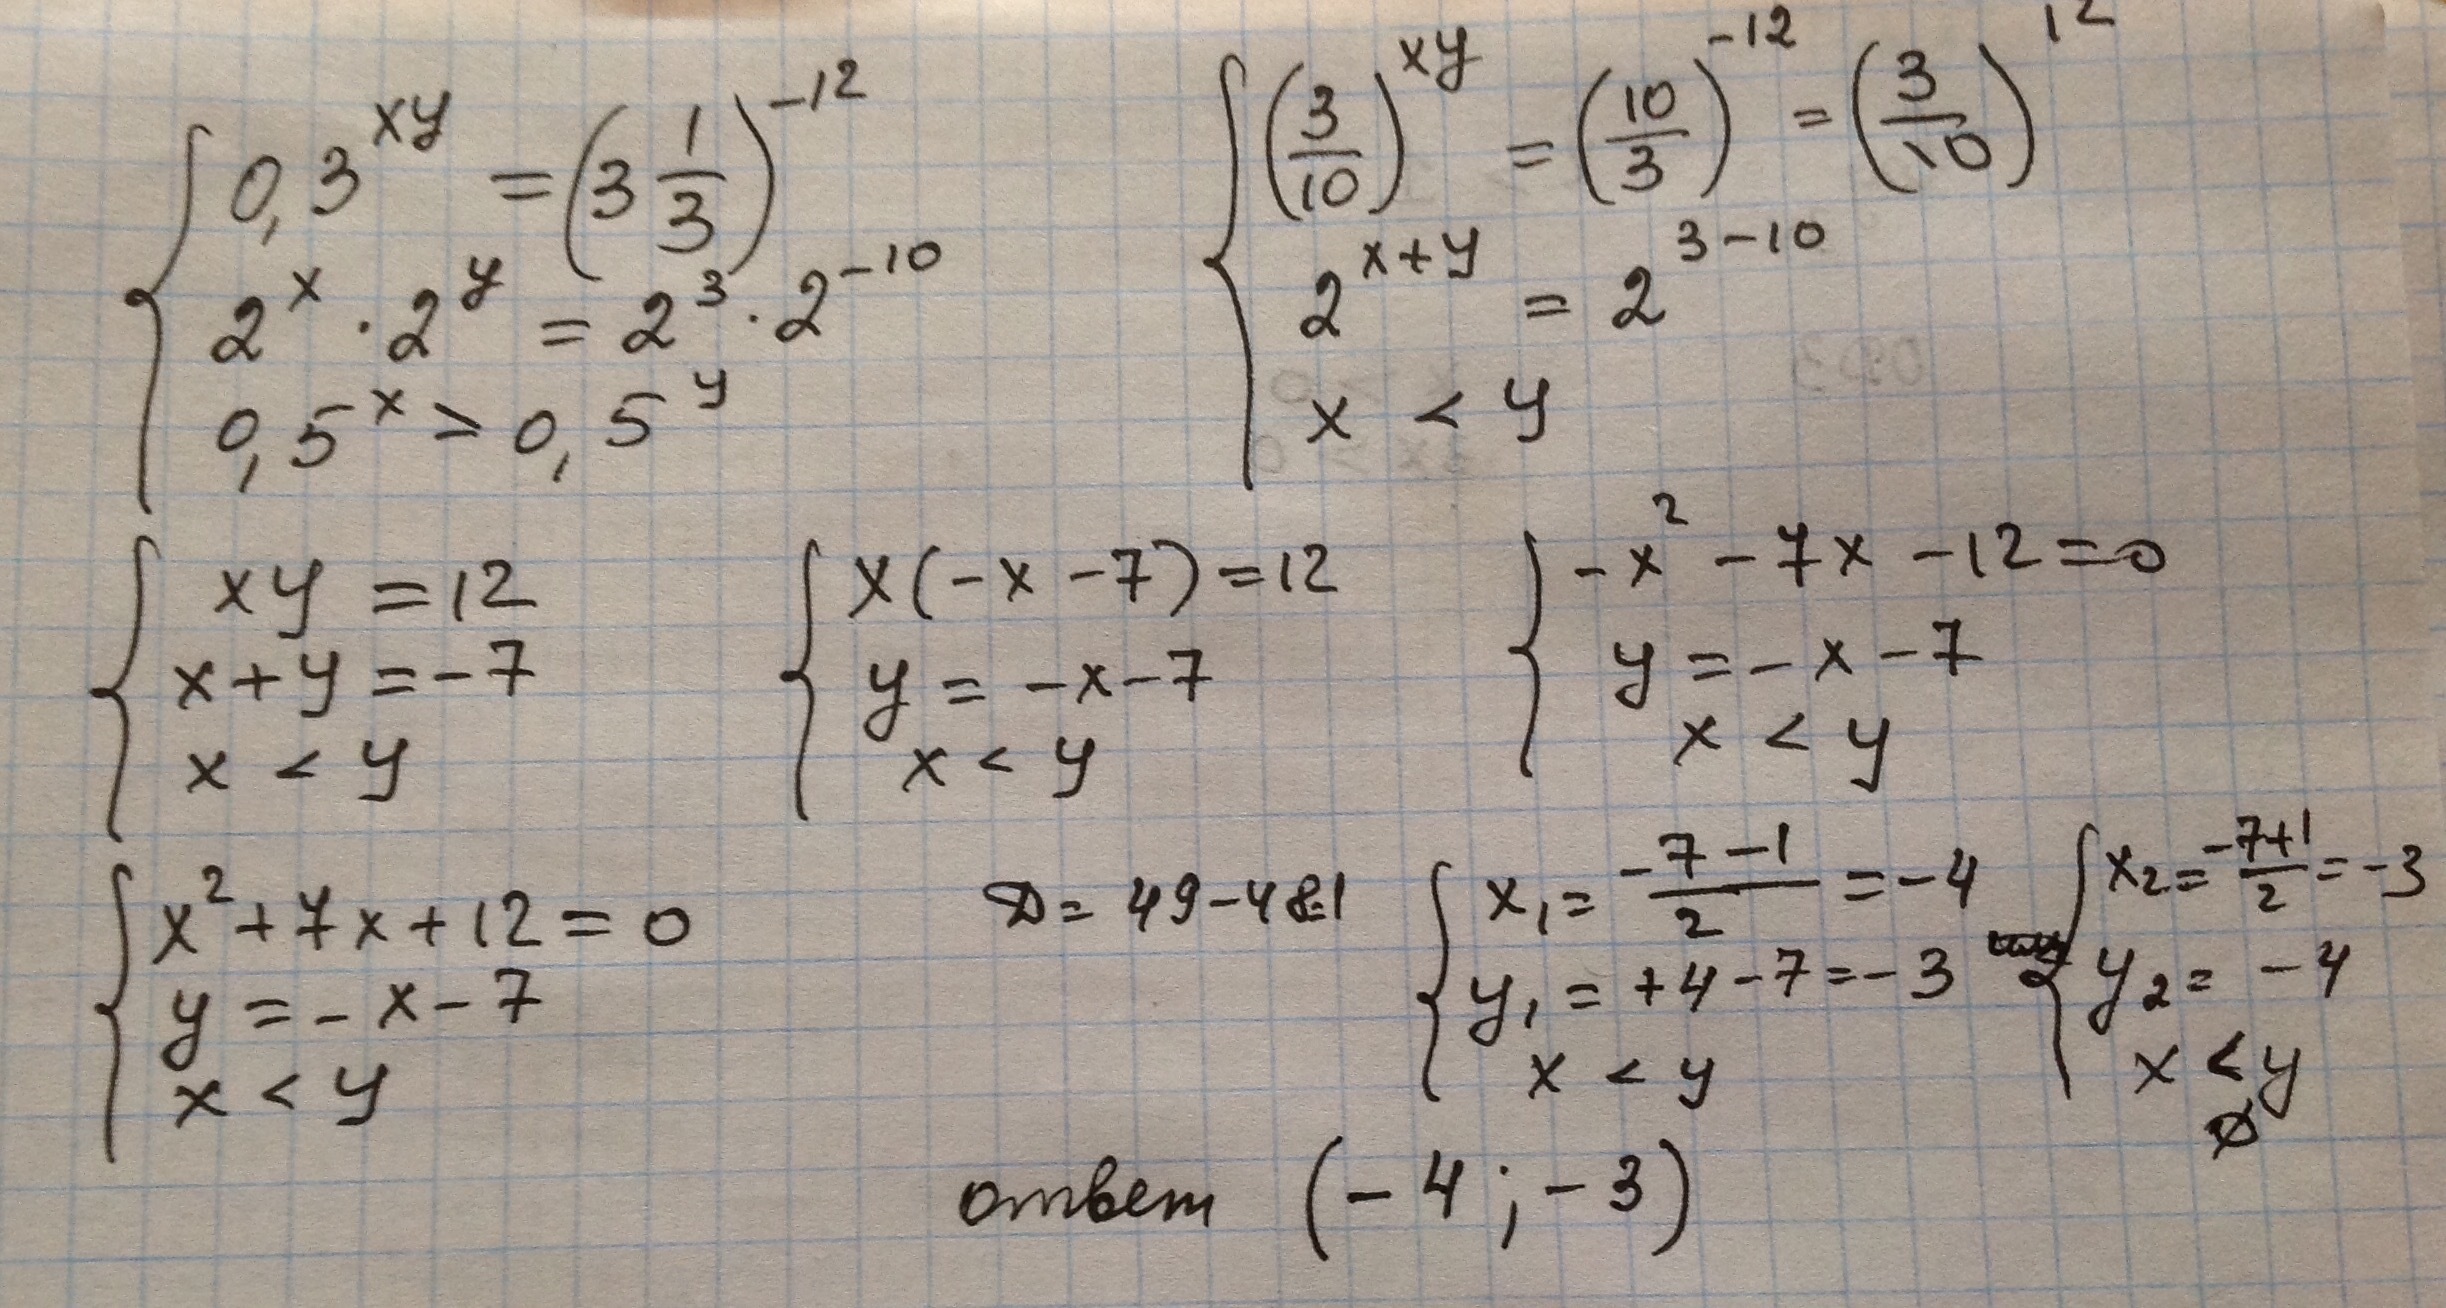 { 0,3^{xy} = (3 1/3)^{-12}
2^x · 2^y = 2^3 · 2^{-10}
0,5^x > 0,5^y
{ (3/10)^{xy} = (10/3)^{-12} = (3/10)^{12}
2^{x+y} = 2^{3-10}
x < y
{ xy = 12
x+y = -7
x < y
{ x(-x-7) = 12
y = -x-7
x < y
{ -x^2 - 7x - 12 = 0
y = -x-7
x < y
{ x^2 + 7x + 12 = 0
y = -x-7
x < y
D = 49-48=1
{ x_1 = (-7-1)/2 = -4
y_1 = +4-7 = -3
x < y
{ x_2 = (-7+1)/2 = -3
y_2 = -4
x < y
∅
ответ (-4; -3)